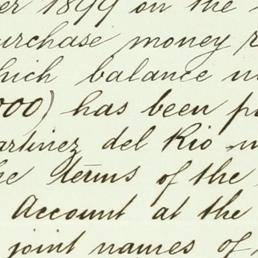 1899 on the
purchase money
which balance
000) has been
artinez del Rio
the terms of the
Account at the
joint names of